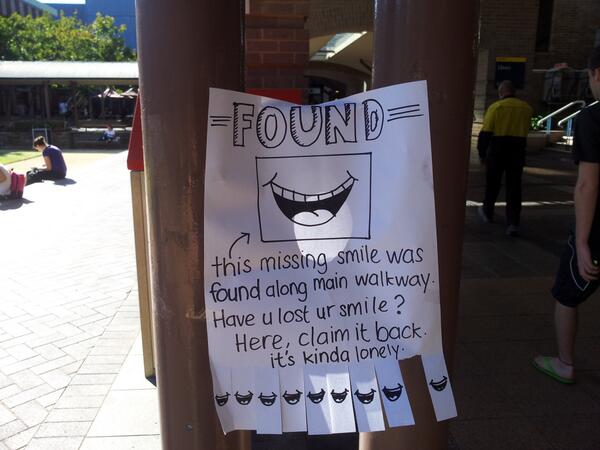 =FOUND=
this missing smile was
found along main walkway.
Have u lost ur smile?
Here, claim it back.
it's kinda lonely.